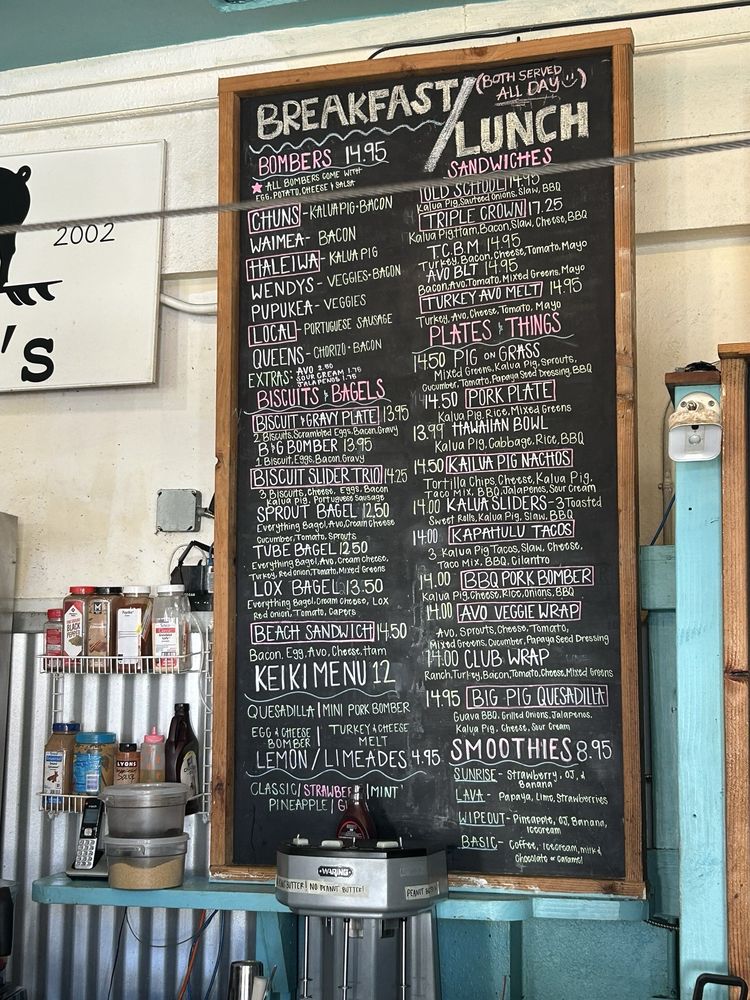 2002
'S
BREAKFAST/
LUNCH
(BOTH SERVED
ALL DAY☺)
BOMBERS 14.95
★ALL BOMBERS COME WITH
EGG, POTATO, CHEESE & SALSA
CHUNS-KALUA PIG+BACON
WAIMEA- BACON
HALEIWA-KALUA PIG
WENDYS-VEGGIES+BACON
PUPUKEA-VEGGIES
LOCAL-PORTUGUESE SAUSAGE
QUEENS-CHORIZO+BACON
EXTRAS: AVO 2.50
SOUR CREAM 1.75
JALAPENOS 1.75
BISCUITS & BAGELS
BISCUIT & GRAVY PLATE 13.95
2 Biscuits, Scrambled Eggs, Bacon, Gravy
B&G BOMBER 13.95
1 Biscuit, Eggs, Bacon, Gravy
BISCUIT SLIDER TRIO 14.25
3 Biscuits, Cheese, Eggs, Bacon
Kalua Pig, Portuguese Sausage
SPROUT BAGEL 12.50
Everything Bagel, Avo, Cream Cheese
Cucumber, Tomato, Sprouts
TUBE BAGEL 12.50
Everything Bagel, Avo, Cream Cheese,
Turkey, Red onion, Tomato, Mixed Greens
LOX BAGEL 13.50
Everything Bagel, Cream Cheese, Lox
Red onion, Tomato, Capers
BEACH SANDWICH 14.50
Bacon, Egg, Avo, Cheese, Ham
KEIKI MENU 12
QUESADILLA | MINI PORK BOMBER
EGG & CHEESE
BOMBER | TURKEY & CHEESE
MELT
LEMON/LIMEADES 4.95
CLASSIC/STRAWBE | MINT
PINEAPPLE/
SANDWICHES
OLD SCHOOL 14.95
Kalua Pig, Sauteed Onions, Slaw, BBQ
TRIPLE CROWN 17.25
Kalua Pig, Ham, Bacon, Slaw, Cheese, BBQ
T.C.B.M 14.95
Turkey, Bacon, Cheese, Tomato, Mayo
AVO BLT 14.95
Bacon, Avo, Tomato, Mixed Greens, Mayo
TURKEY AVO MELT 14.95
Turkey, Avo, Cheese, Tomato, Mayo
PLATES & THINGS
14.50 PIG ON GRASS
Mixed Greens, Kalua Pig, Sprouts,
Cucumber, Tomato, Papaya Seed Dressing, BBQ
14.50 PORK PLATE
Kalua Pig, Rice, Mixed Greens
13.99 HAWAIIAN BOWL
Kalua Pig, Cabbage, Rice, BBQ
14.50 KALUA PIG NACHOS
Tortilla Chips, Cheese, Kalua Pig,
Taco Mix, BBQ, Jalapenos, Sour Cream
14.00 KALUA SLIDERS-3 Toasted
Sweet Rolls, Kalua Pig, Slaw, BBQ
14.00 KAPAHULU TACOS
3 Kalua Pig Tacos, Slaw, Cheese,
Taco Mix, BBQ, Cilantro
14.00 BBQ PORK BOMBER
Kalua Pig, Cheese, Rice, Onions, BBQ
14.00 AVO VEGGIE WRAP
Avo, Sprouts, Cheese, Tomato,
Mixed Greens, Cucumber, Papaya Seed Dressing
14.00 CLUB WRAP
Ranch, Turkey, Bacon, Tomato, Cheese, Mixed Greens
14.95 BIG PIG QUESADILLA
Guava BBQ, Grilled Onions, Jalapenos,
Kalua Pig, Cheese, Sour Cream
SMOOTHIES 8.95
SUNRISE- Strawberry, OJ, &
Banana
LAVA- Papaya, Lime, Strawberries
WIPEOUT- Pineapple, OJ, Banana,
Icecream
BASIC- Coffee, Icecream, milk &
Chocolate or Caramel
BLACK
LYONS
WARING
NUT BUTTER! NO PEANUT BUTTER!
PEANUT